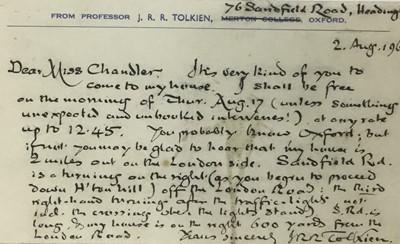 76 Sandfield Road, Heading
FROM PROFESSOR J. R. R. TOLKIEN, MERTON COLLEGE, OXFORD.
2. Aug. 196
Dear Miss Chandler. It is very kind of you to
come to my house. I shall be free
on the morning of Thur. Aug. 17 (unless something
unexpected and unbooked intervenes!), at any rate
up to 12.45. You probably know Oxford; but
if not you may be glad to hear that my house is
2 miles out on the London side. Sandfield Rd.
is a turning on the right (as you begin to proceed
down H'ton hill) off the London Road: the third
right-hand turning after the traffic-lights (not
incl. the crossing where the lights stand). S. Rd. is
long, & my house is on the right 600 yards from the
London Road. Yours sincerely J.R.R. Tolkien.